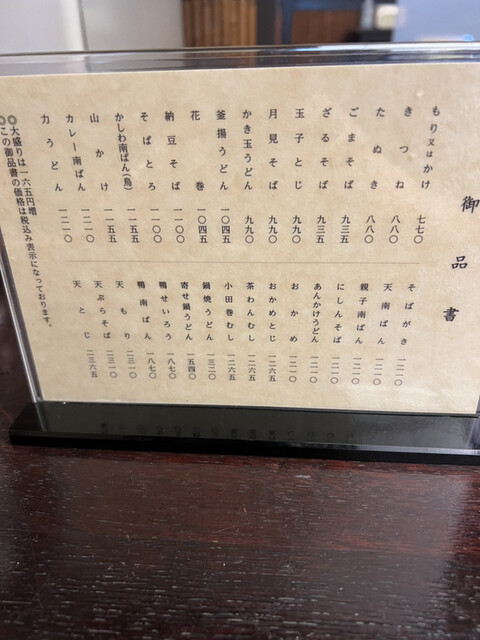 御品書
もり又はかけ 七七〇
きつね 八八〇
たぬき 八八〇
ごまそば 九三五
ざるそば 九三五
玉子とじ 九九〇
月見そば 九九〇
かき玉うどん 九九〇
釜揚うどん 一〇四五
花巻 一〇四五
納豆そば 一一〇〇
そばとろ 一一〇〇
かしわ南ばん(鳥) 一一五五
山かけ 一一五五
カレー南ばん 一二一〇
力うどん 一二一〇
そばがき 一二一〇
天南ばん 一二一〇
親子南ばん 一二一〇
にしんそば 一二一〇
あんかけうどん 一二一〇
おかめ 一二一〇
おかめとじ 一二六五
茶わんむし 一二六五
小田巻むし 一二六五
鍋焼うどん 一三二〇
寄せ鍋うどん 一五四〇
鴨せいろう 一八七〇
鴨南ばん 一八七〇
天もり 二三一〇
天ぷらそば 二三一〇
天とじ 二三六五
◎大盛りは一六五円増
◎この御品書の価格は税込み表示になっております。